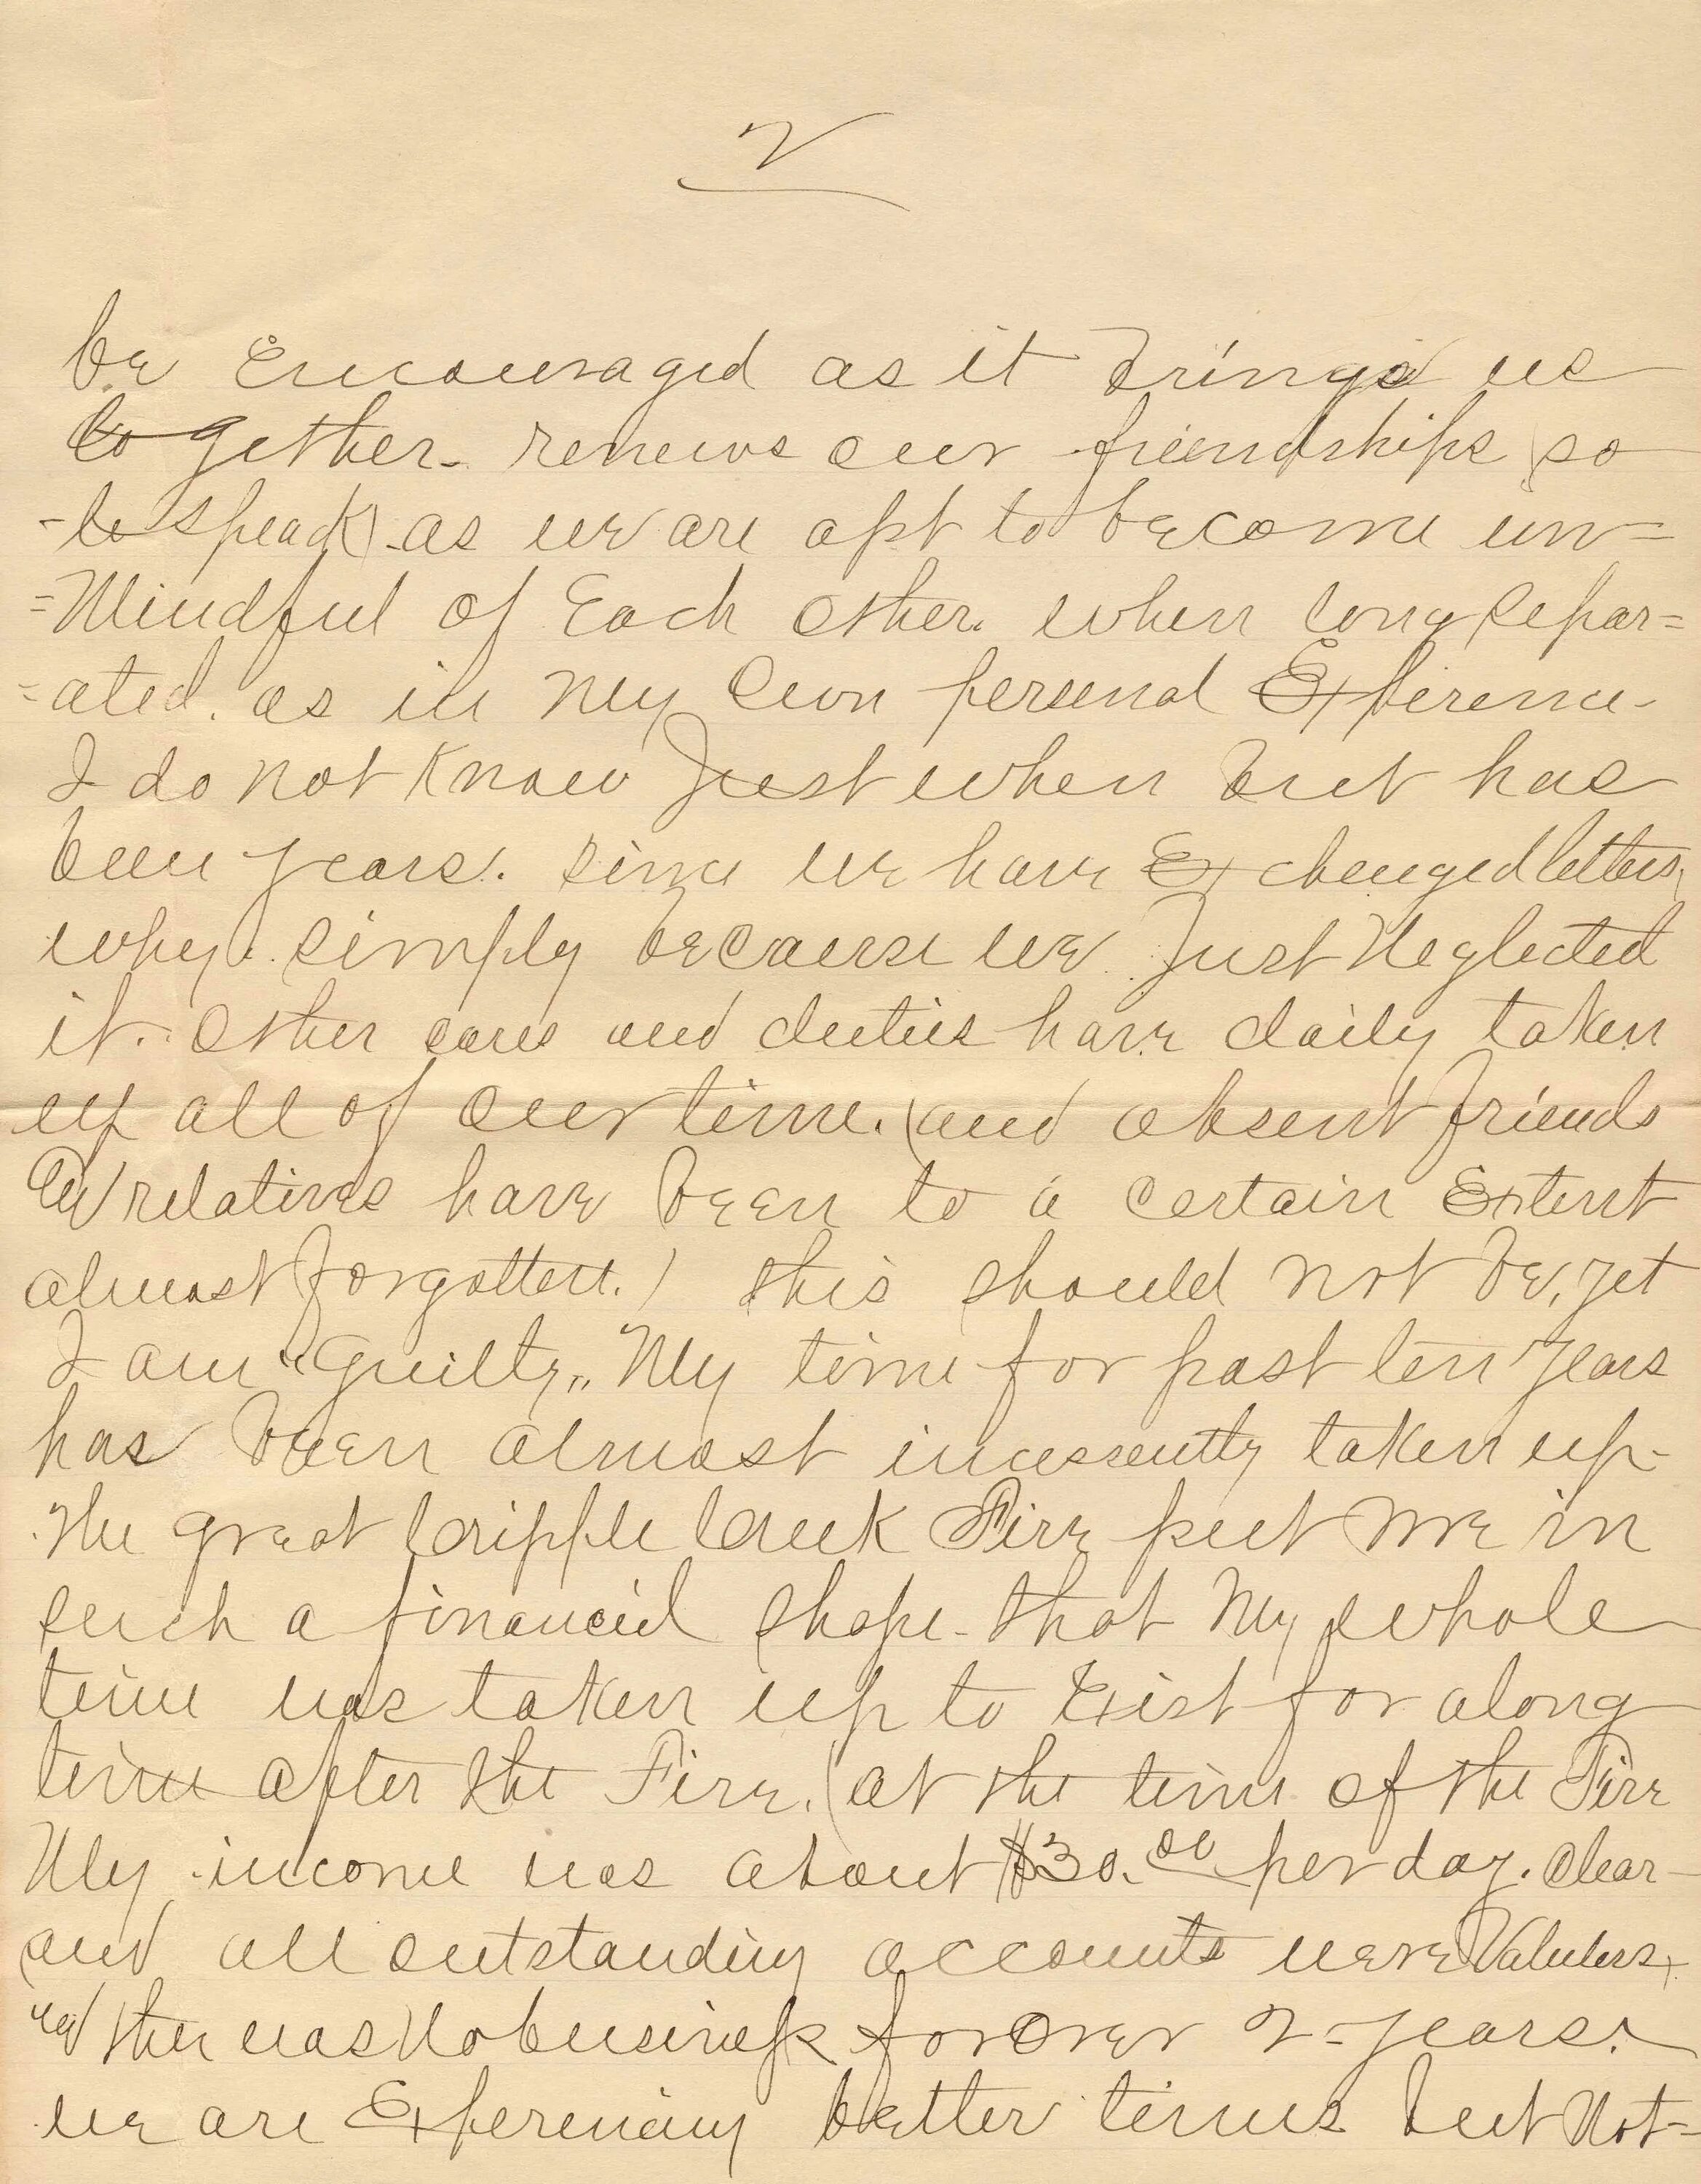 2
be Encouraged as it brings us
together. renews our friendships (so
-to speak) -as we are apt to become un=
=Mindful of Each other. when long separ=
=ated. as in My Own personal Experience-
I do not Know Just when but has
been years. since we have Exchanged letters,
why. simply because we Just Neglected
it. Other cares and duties have daily taken
up all of Our time. (and absent friends
and relatives have been to a certain Extent
almost forgotten.) this should not be, yet
I am "Guilty" My time for past ten years
has been almost incessently taken up-
The great Cripple Creek Fire put me in
such a financial shape- that My whole
time was taken up to Exist for along
time after the Fire. (at the time of the Fire
My income was about $30.00 per day. Clear-
and all outstanding accounts were Valuless,
and ther was No business for over 2-years.
we are Experiencing better times but Not=